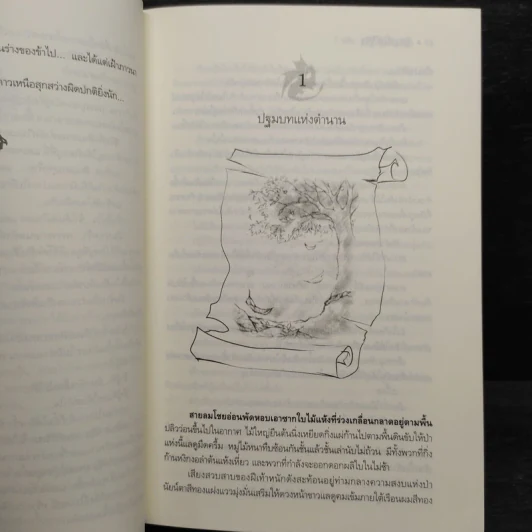 นร่างของข้าไป... และได้แต่เฝ้าภาวนา
าวเหนือสุกสว่างผิดปกติยิ่งนัก...
1
ปฐมบทแห่งตำนาน
สายลมโชยอ่อนพัดหอบเอาซากใบไม้แห้งที่ร่วงเกลื่อนกลาดอยู่ตามพื้น
ปลิวร่อนขึ้นไปในอากาศ ไม้ใหญ่ยืนต้นนิ่งเหยียดกิ่งแผ่ก้านไปตามพื้นดินขับให้ป่า
แห่งนี้แลดูมืดครึ้ม หมู่ไม้หนาทึบซ้อนกันชั้นแล้วชั้นเล่านับไม่ถ้วน มีทั้งพวกที่กิ่ง
ก้านหงิกงอลำต้นแห้งเหี่ยว และพวกที่กำลังจะออกดอกผลิใบในไม่ช้า
เสียงสวบสาบของฝีเท้าหนักดังสะท้อนอยู่ท่ามกลางความสงบแห่งป่า
นัยน์ตาสีทองแฝงแววมุ่งมั่นเสริมให้ดวงหน้าขาวแลดูคมเข้มภายใต้เรือนผมสีทอง